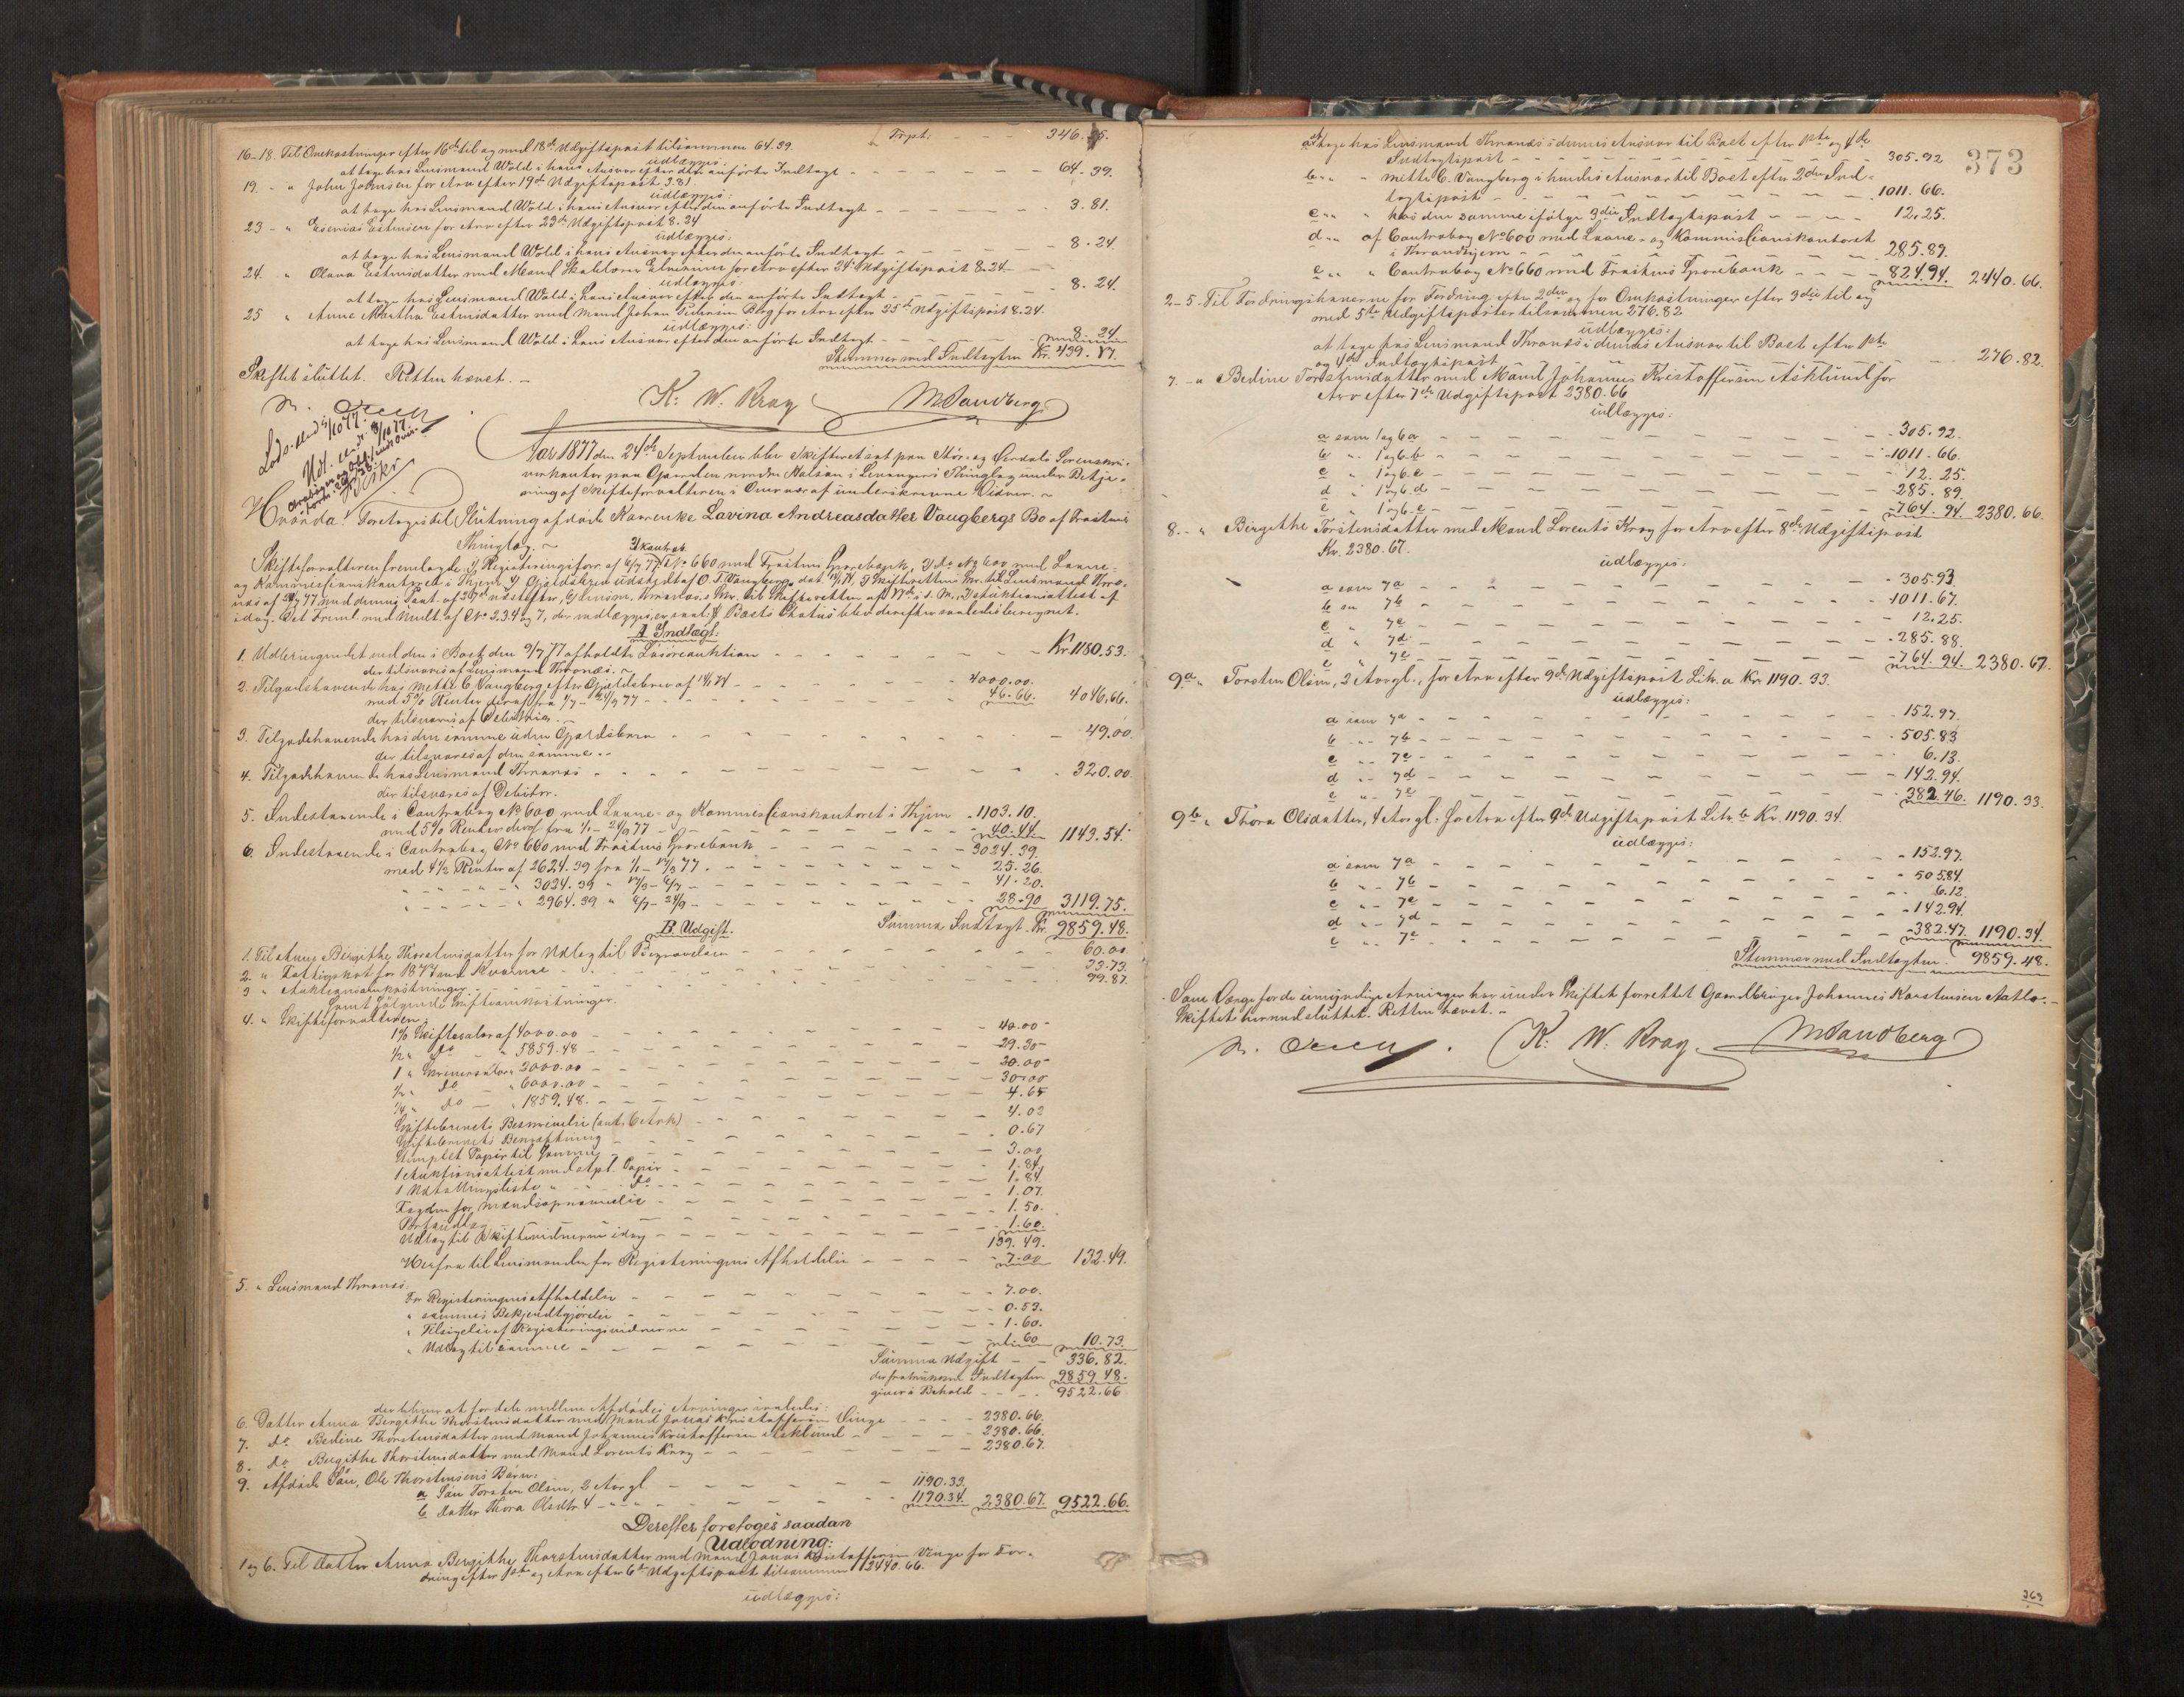 Trpt: - - - 346.75.
16-18. Til Omkostninger efter 16de til og med 18de Udgiftspost tilsammen 64.39.
udlægges:
at tage hos Lensmand Wold i hans Ansvar efter den anførte Indtægt - - - 64.39.
19. - " John Johnsen for Arv efter 19de Udgiftspost 3.81
udlægges:
at tage hos Lensmand Wold i hans Ansvar efter den anførte Indtægt - - - 3.81.
23 - " Esten for Arv efter 23de Udgiftspost 8.24
udlægges:
at tage hos Lensmand Wold i hans Ansvar efter den anførte Indtægt - - - 8.24.
24. " Olava Estensdatter med Mand for Arv efter 24de Udgiftspost 8.24
udlægges:
at tage hos Lensmand Wold i hans Ansvar efter den anførte Indtægt - - - 8.24.
25 " Anne Martha Estensdatter med Mand Johan Berg for Arv efter 25de Udgiftspost 8.24.
udlægges:
at tage hos Lensmand Wold i hans Ansvar efter den anførte Indtægt - - - 8.24
Stemmer med Indtægten Kr. 439.87.
Skiftet sluttet. Retten hævet. -
K. W. Krag MSandberg
Aar 1877 den 24de September blev Skifteret sat paa Stør- og Værdals Sorenskri-
verkontor paa Gaarden nordre Halsan i Levangers Thinglag under Betje-
ning af Skifteforvalteren i Overvær af underskrevne Vidner. -
Hvorda: Foretoges til Slutning afdøde Lavina Andreasdatter Vougbergs Bo af Frostens
Thinglag. -
Skifteforvalteren fremlagde: 1) Registreringsforr. af 6/7 77, 2) Contrab. No 660 med Frostens Sparebank, 3) Do No 600 med Laane-
og Kommissionskontoret i Thjem 4) Gjældsbrev udstedt af O. T. Vougberg
idag. Det Freml. med Undt. af No. 2.3.4 og 7, der udlægges, er saal. Boets Status blev derefter saaledes beregnet.
A. Indtægt:
1. Udbringendet ved den i Boet den 9/7 77 afholdte Løsøreauktion - - - Kr. 1180.53.
der tilsvares af Lensmand Thronæs. -
2. Tilgodehavende hos Mette C. Vougberg efter Gjældsbrev af 14/1 74 - - - 4000.00.
med 5% Renter deraf fra 1/7 - 24/9 77 - - - 46.66. 4046.66.
der tilsvares af Debitrix. -
3. Tilgodehavende hos den samme uden Gjældsbrev - - - 49.00.
der tilsvares af den samme. -
4. Tilgodehavende hos Lensmand Thronæs - - - 320.00
der tilsvares af Debitor.
5. Indestaaende i Contrabog No 600 med Laane- og Kommissionskontoret i Thjem - 1103.10.
med 5% Renter deraf fra 1/1 - 24/9 77 - - - 40.44. 1143.54.
6. Indestaaende i Contrabog No 660 med Frostens Sparebank - - - 3024.39.
med 4½ Renter af 2624.39 fra 1/1 - 17/3 77 - - - 25.26.
" - " - " 3024.39 " 17/3 - 6/7 - - - 41.20.
" - " - " 2964.39 " 6/7 - 24/9 - - - 28.90 3119.75.
Summa Indtægt Kr. 9859.48.
B. Udgift.
1. Til Anna Bergithe Thorstensdatter for Udlæg til Begravelsen - - - 60.00
2. " Fattigskat for 1877 med - - - 33.73.
3 " Auktionsomkostninger - - - 99.87.
Samt følgende Skifteomkostninger.
4. " Skifteforvalteren:
1% Skiftesalær af 4000.00 - - - 40.00
½ " do - " 5859.48 - - - 29.30
1 " Incamsalær " 2000.00 - - - 20.00
½ " do " 6000.00 - - - 30.00
¼ " do - " 1859.48 - - - 4.65
Skiftebrevets Beskrivelse (ant. 6 Ark) - - - 4.02
Skiftebrevets Bekræftning - - - 0.67
Stemplet Papir til samme - - - 3.00
1 Auktionsattest med stpl. Papir - - - 1.84.
1 Udtællingsliste " - " do - - - 1.84.
Fogden for Mændsopnævnelse - - - 1.07.
Portoudlæg - - - 1.50.
Udlæg til Skiftevidnerne idag - - - 1.60.
139.49.
Herfra til Lensmanden for Registreringens Afholdelse - - - 7.00 132.49.
5. " Lensmand Thronæs:
For Registreringens Afholdelse - - - 7.00.
" sammes Bekjendtgjørelse - - - 0.53.
" Tilsigelse af Registreringsvidnerne - - - 1.60.
" Udlæg til samme - - - 1.60 10.73
Summa Udgift - - 336.82.
der fratrukken Indtægten 9859.48.
giver i Behold - - - 9522.66
der bliver at fordele mellem Afdødes Arvinger saaledes:
6. Datter Anna Bergithe Thorstensdatter med Mand Jonas Kristoffersen Vinge - - - 2380.66.
7. do Bedine Thorstensdatter med Mand Johannes Kristoffersen Asklund - - - 2380.66.
8. do Bergithe Thorstensdatter med Mand Lorents Krog - - - 2380.67.
9. Afdøde Søn, Ole Thorstensens Børn:
a Søn Torsten Olsen, 2 Aar gl. - - - 1190.33.
b Datter Thora Olsdtr. 4 - " - - - 1190.34. 2380.67. 9522.66.
Derefter foretoges saadan
Udlodning:
1 og 6. Til Datter Anna Bergithe Thorstensdatter med Mand Jonas Kristoffersen Vinge for For-
dring efter 1ste og Arv efter 6te Udgiftspost tilsammen 2440.66.
udlægges:
373
at tage hos Lensmand Thronæs i dennes Ansvar til Boet efter 1ste og 4de
Indtægtspost - - - 305.92
b - " - Mette C. Vougberg i hendes Ansvar til Boet efter 2den Ind-
tægtspost - - - 1011.66.
c - " " hos den samme ifølge 3die Indtægtspost - - - 12.25.
d - " af Contrabog No 600 med Laane- og Kommissionskontoret
i Throndhjem - - - 285.89.
e - " " Contrabog No 660 med Frostens Sparebank - - - 824.94. 2440.66.
2-5. Til Fordringshaverne for Fordring efter 2den og for Omkostninger efter 3die til og
med 5te Udgiftsposter tilsammen 276.82
udlægges:
at tage hos Lensmand Thronæs i dennes Ansvar til Boet efter 1ste
og 4de Indtægtspost - - - 276.82.
7. - " Bedine Torstensdatter med Mand Johannes Kristoffersen Asklund for
Arv efter 7de Udgiftspost 2380.66
udlægges:
a som 1 og 6 a - - - 305.92.
b " 1 og 6 b - - - 1011.66.
c " 1 og 6 c - - - 12.25.
d " 1 og 6 d - - - 285.89.
e " 1 og 6 e - - - 764.94. 2380.66.
8. - " Bergithe Torstensdatter med Mand Lorents Krog for Arv efter 8de Udgiftspost
Kr. 2380.67.
udlægges:
a som 7a - - - 305.93.
b " 7b - - - 1011.67.
c " 7c - - - 12.25.
d " 7d - - - 285.88.
e " 7e - - - 764.94. 2380.67.
9a " Torsten Olsen, 2 Aar gl., for Arv efter 9de Udgiftspost Litr. a Kr. 1190.33.
udlægges:
a som 7a - - - 152.97.
b " - 7b - - - 505.83
c " - 7c - - - 6.13.
d " - 7d - - - 142.94.
e " - 7e - - - 382.46. 1190.33.
9b " Thora Olsdatter, 4 Aar gl. for Arv efter 9de Udgiftspost Litr. b Kr. 1190.34.
udlægges:
a som 7a - - - 152.97.
b " - 7b - - - 505.84.
c " - 7c - - - 6.12.
d " - 7d - - - 142.94.
e " - 7e - - - 382.47. 1190.34.
Stemmer med Indtægten 9859.48.
Som Værge for de umyndige Arvinger har under Skiftet forrettet Gaardbruger Johannes Karstensen Aatlo. -
Skiftet hermed sluttet. Retten hævet. -
K. W. Krag. MSandberg
369